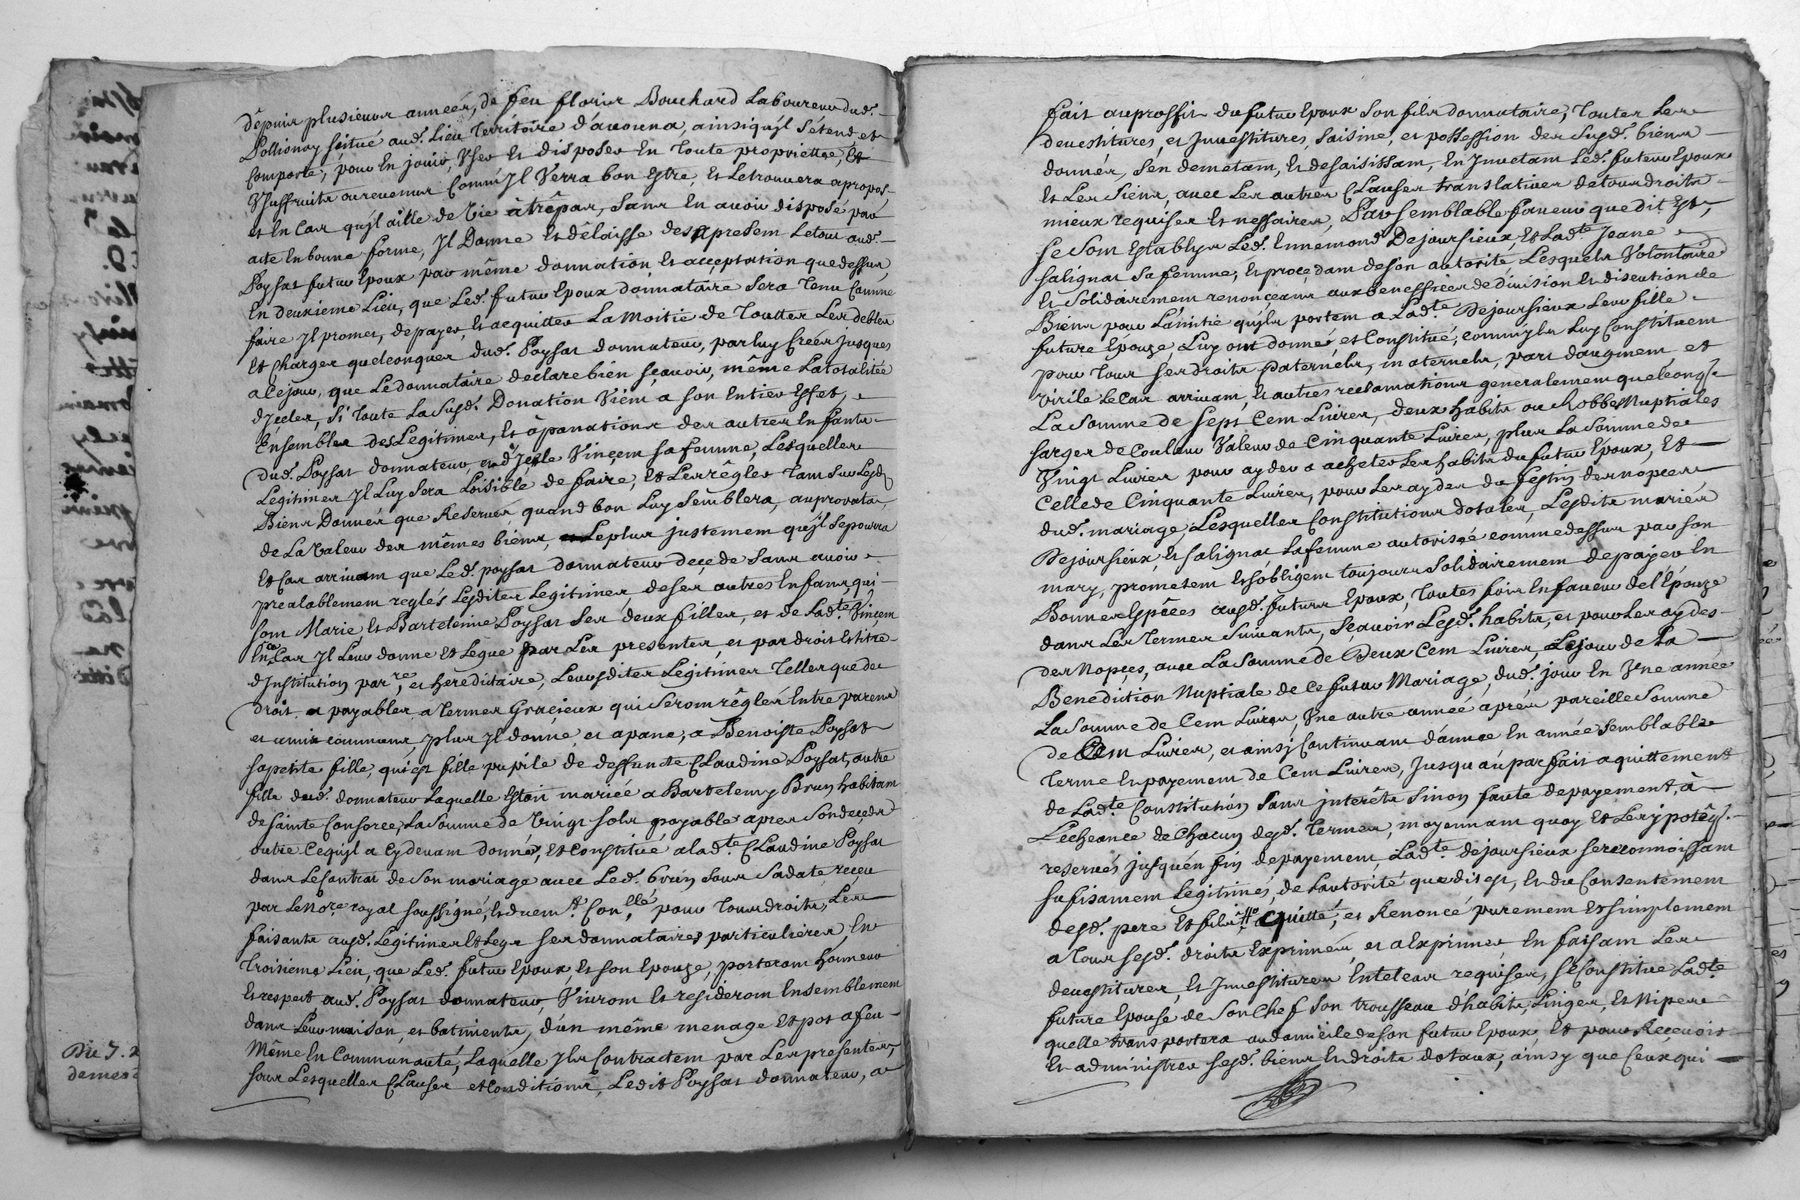 depuis plusieurs années, de feu floris Bouchard Laboureur dud.
Pollionay scitué aud. Lieu territoire d'auouna, ainsi quyl s'étend et
Comporte, pour En jouir, User Et disposer En toute proprietté, Et
Usuffruits auvenir Comm'Jl Verra bon Estre, Et Letrouuera apropos
et En Cas quyl aille de Vie à trêpas, sans En avoir disposé par
acte En bonne forme, Jl Donne Et dêlaisse dès apresem Letout aud.
Poysat futur Epoux par même donnation, Et acçeptation que dessus,
En deuxieme Lieu, que Led. futur Epoux donnataire sera tenu Comme
faire Jl promet, de payer, Et acquitter La Moitié de toutte Les debtes
Et Charges quelconques dud. Poysat donnateur, par luy Créés jusques
a Cejour, que Le donnataire declare bien sçauoir, même La totalitée
d'Jçelles, si toute La Susd. Donation Vient a son Entier Effet,
Ensemble des Legitimes, Et âpanations des autres Enfants
dud. Poysat donnateur, Vinçem sa femme, Lesquelles
Legitimes Jl Luy sera Loisible de faire, Et Les rêgler tam sur Lesd.
Biens Donnés que Reservés quand bon Luy Semblera, auprorata,
de La Valeur des mêmes biens, Leplus justemem quyl se pourra
Et Cas arriuam que Led. poysat donnateur deçede Sans auoir
prealablemem reglés Lesdites Legitimes de ses autres Enfans, qui
som Marie Et Bartelemie Poysat Ses deux filles, et de Ladte. Vinçem
En ce Cas Jl Leur donne Et Legue par Les presentes, et par droit Et titre
d'Institution parre. et hereditaire, Leursdites Legitimes telles que de
droit payables a termes Graçieux qui Serom rêglés Entre parens
et amis communs, plus Jl donne, et apane, a Benoiste Poysat
sa petite fille, qui est fille pupile de deffuncte Claudine Poysat, autre
fille dud. donnateur Laquelle Etoit mariée a Bartelemy Brun habitam
de Sainte Consorce, La Somme de Vingt sols payable apres Son deçeds
outre Cequyl a Cydeuam donné, et Constitué a Ladte. Claudine Poysat
dans Le Contrat de Son mariage auec Led. brun Sous Sa date, reçeu
par Le Nore. royal soussigné, Et duem. Conllé, pour tous droits, Les
faisants ausd. Legitimes Et Legs ses donnataires particulières, En
troisieme Lieu, que Led. futur Epoux, Et son Epouze, porterom honneur
Et respect aud. Poysat donnateur, Viurom Et residerom Ensemblemem
dans Leur maison, et batiments, d'un même menage Et pot a feu
Même En Communauté, Laquelle Jls Contractem par Les presentes,
sous Lesquelles Clauses et Conditions, Ledit Poysat donnateur, a
fait auproffit du futur Epoux son fils donnataire, toutes Les
deuestitures, et Jnuestitures, Saisine, et possession des Susd. biens
donnés, S'en demetam, Et desaisissam, En Jnuetam Led. futur Epoux
Et Les Siens, auec Les autres Clauses translatiues de tous droits
mieux requises Et nessaires, Par semblable faueur que dit Est,
se Som Establys Led. Ennemond Dejoursieux Et Ladte. Jeane
salignat Sa femme, Et proçedam de son autorité Lesquels Volontaire
Et Solidairemem renonçeans aux benefficer de diuision Et discution de
Biens pour L'amitié quyls portem a Ladte. Dejoursieux Leur fille
future Epouze, Luy ont donné, et Constitué, comm'yls Luy Constituem
pour tous ses droits paternels, maternels, part daugmem, et
virile Le Cas arriuam, Et autres reclamations generalemem quelconqs.
La Somme de Sept Cem Liures, deux habits ou Robbes Nuptiales
sarges de Couleur Valeur de Cinquante Liures, plus La Somme de
Vingt Liures pour ayder a acheter Les habits du futur Epoux, Et
Celle de Cinquante Liures, pour Les ayder du festin des nopces
dud. mariage, Lesquelles Constitutions dotales, Lesdits mariés
Dejoursieux, Et salignat La femme autorisée comme dessus par son
mary, prometem Et s'obligem toujours Solidairemem de payer En
Bonnes Espêces ausd. futurs Epoux, toutes fois En faueur de l'Epouze
dans Les termes Suiuants, Sçauoir Lesd. habits, et pour Les aydes
des Nopçes, auec La Somme de Deux Cem Liures, Lejour de La
Benediction Nuptiale de Ce futur Mariage, dud. jour En Une année
La Somme de Cem Liures, Une autre année aprés pareille Somme
de Cem Liures, et ainsj Continuam dannée En année Semblable
terme Et payement de Cem Liures, jusqu'au parfait aquittement
de Ladte. Constitution Sans interêts Sinon faute de payement, à
L'écheance de Chacun desd. termes, moyennam quoy Et Les ypotêqs.
reservés jusqu'en fin de payement, Ladte. dejoursieux se reconnoissam
sufisamem Legitimée, de Lautorité que dit est, Et du Consentemem
desd. pere Et futur a quitté, et Renoncé puremem Et simplemem
a tous sesd. droits Exprimés, et a Exprimer En faisam Les
deuestitures, Et Jnuestitures En tel Cas requises, Se Constitue Ladte.
future Epouse de Son Chef Son trousseau d'habits, Linges, Et Nipes
quelle transportera au domicile de son futur Epoux, Et pour Reçeuoir
Et administrer sesd. biens Et droits dotaux, ainsy que Ceux qui